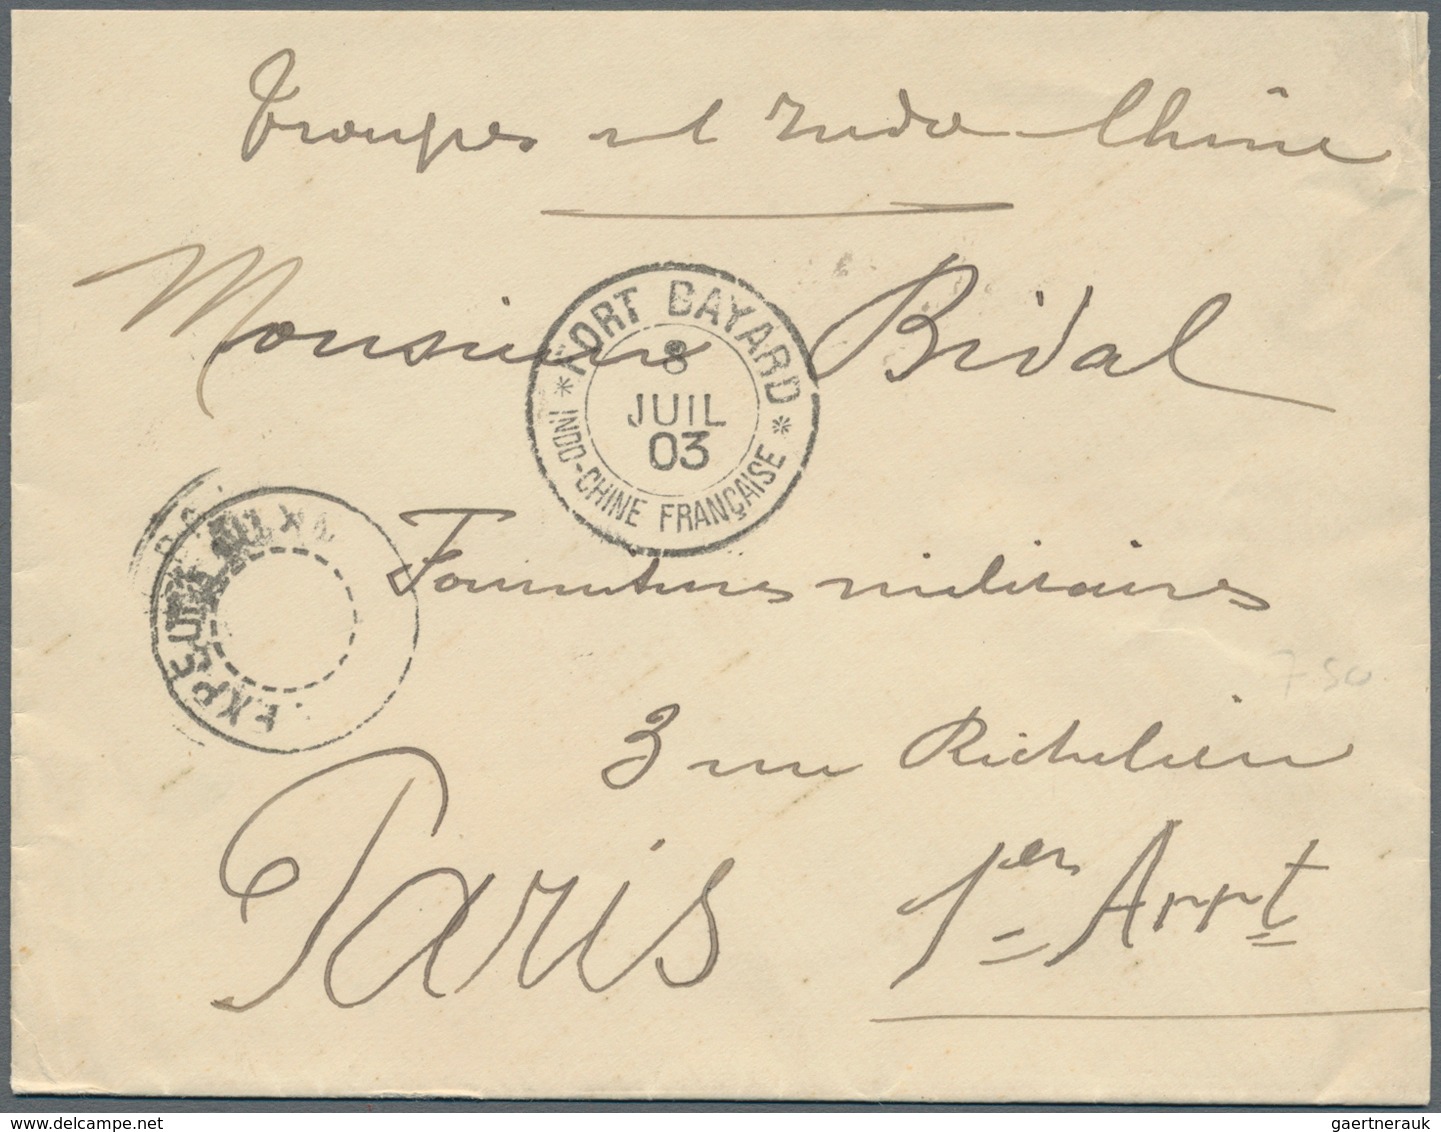 Troupes et Indo-Chine
Monsieur Bidal
FORT BAYARD
8
JUIL
03
INDO-CHINE FRANÇAISE
Fournitures militaires
7.50
3 rue Richelieu
Paris 1er Arrt
gaertnerauk @ delcampe.net